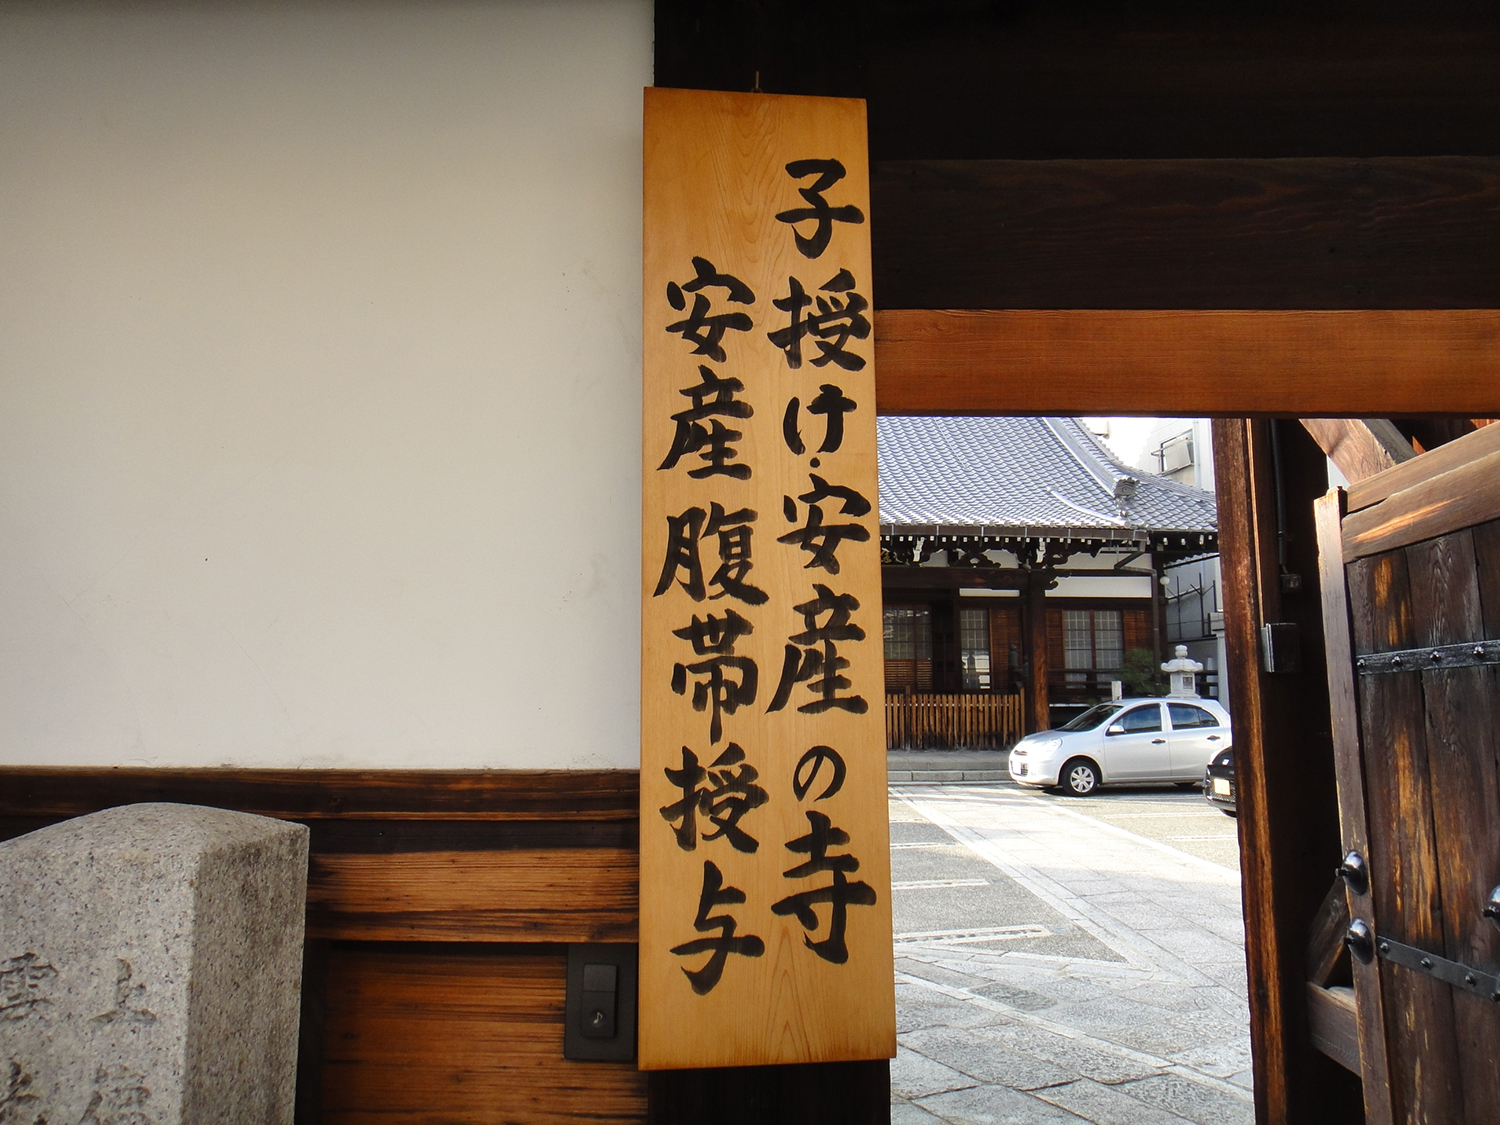 子授け・安産の寺
安産腹帯授与
上
雲